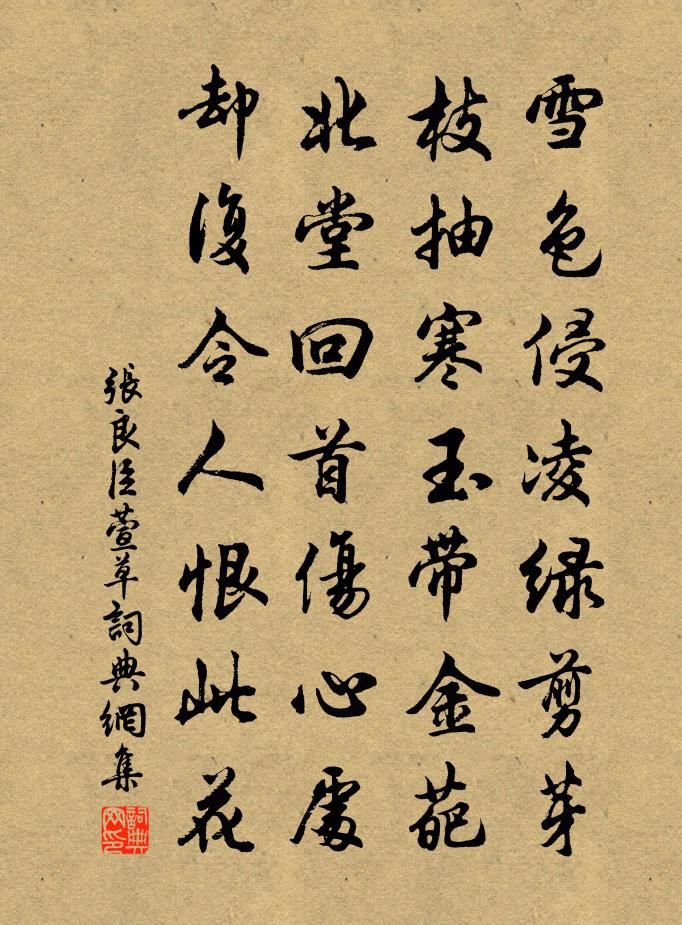 雪色侵凌绿剪芽
枝抽寒玉带金葩
北堂回首傷心處
却復令人恨此花
張良臣萱草詞典網集
詞典网印